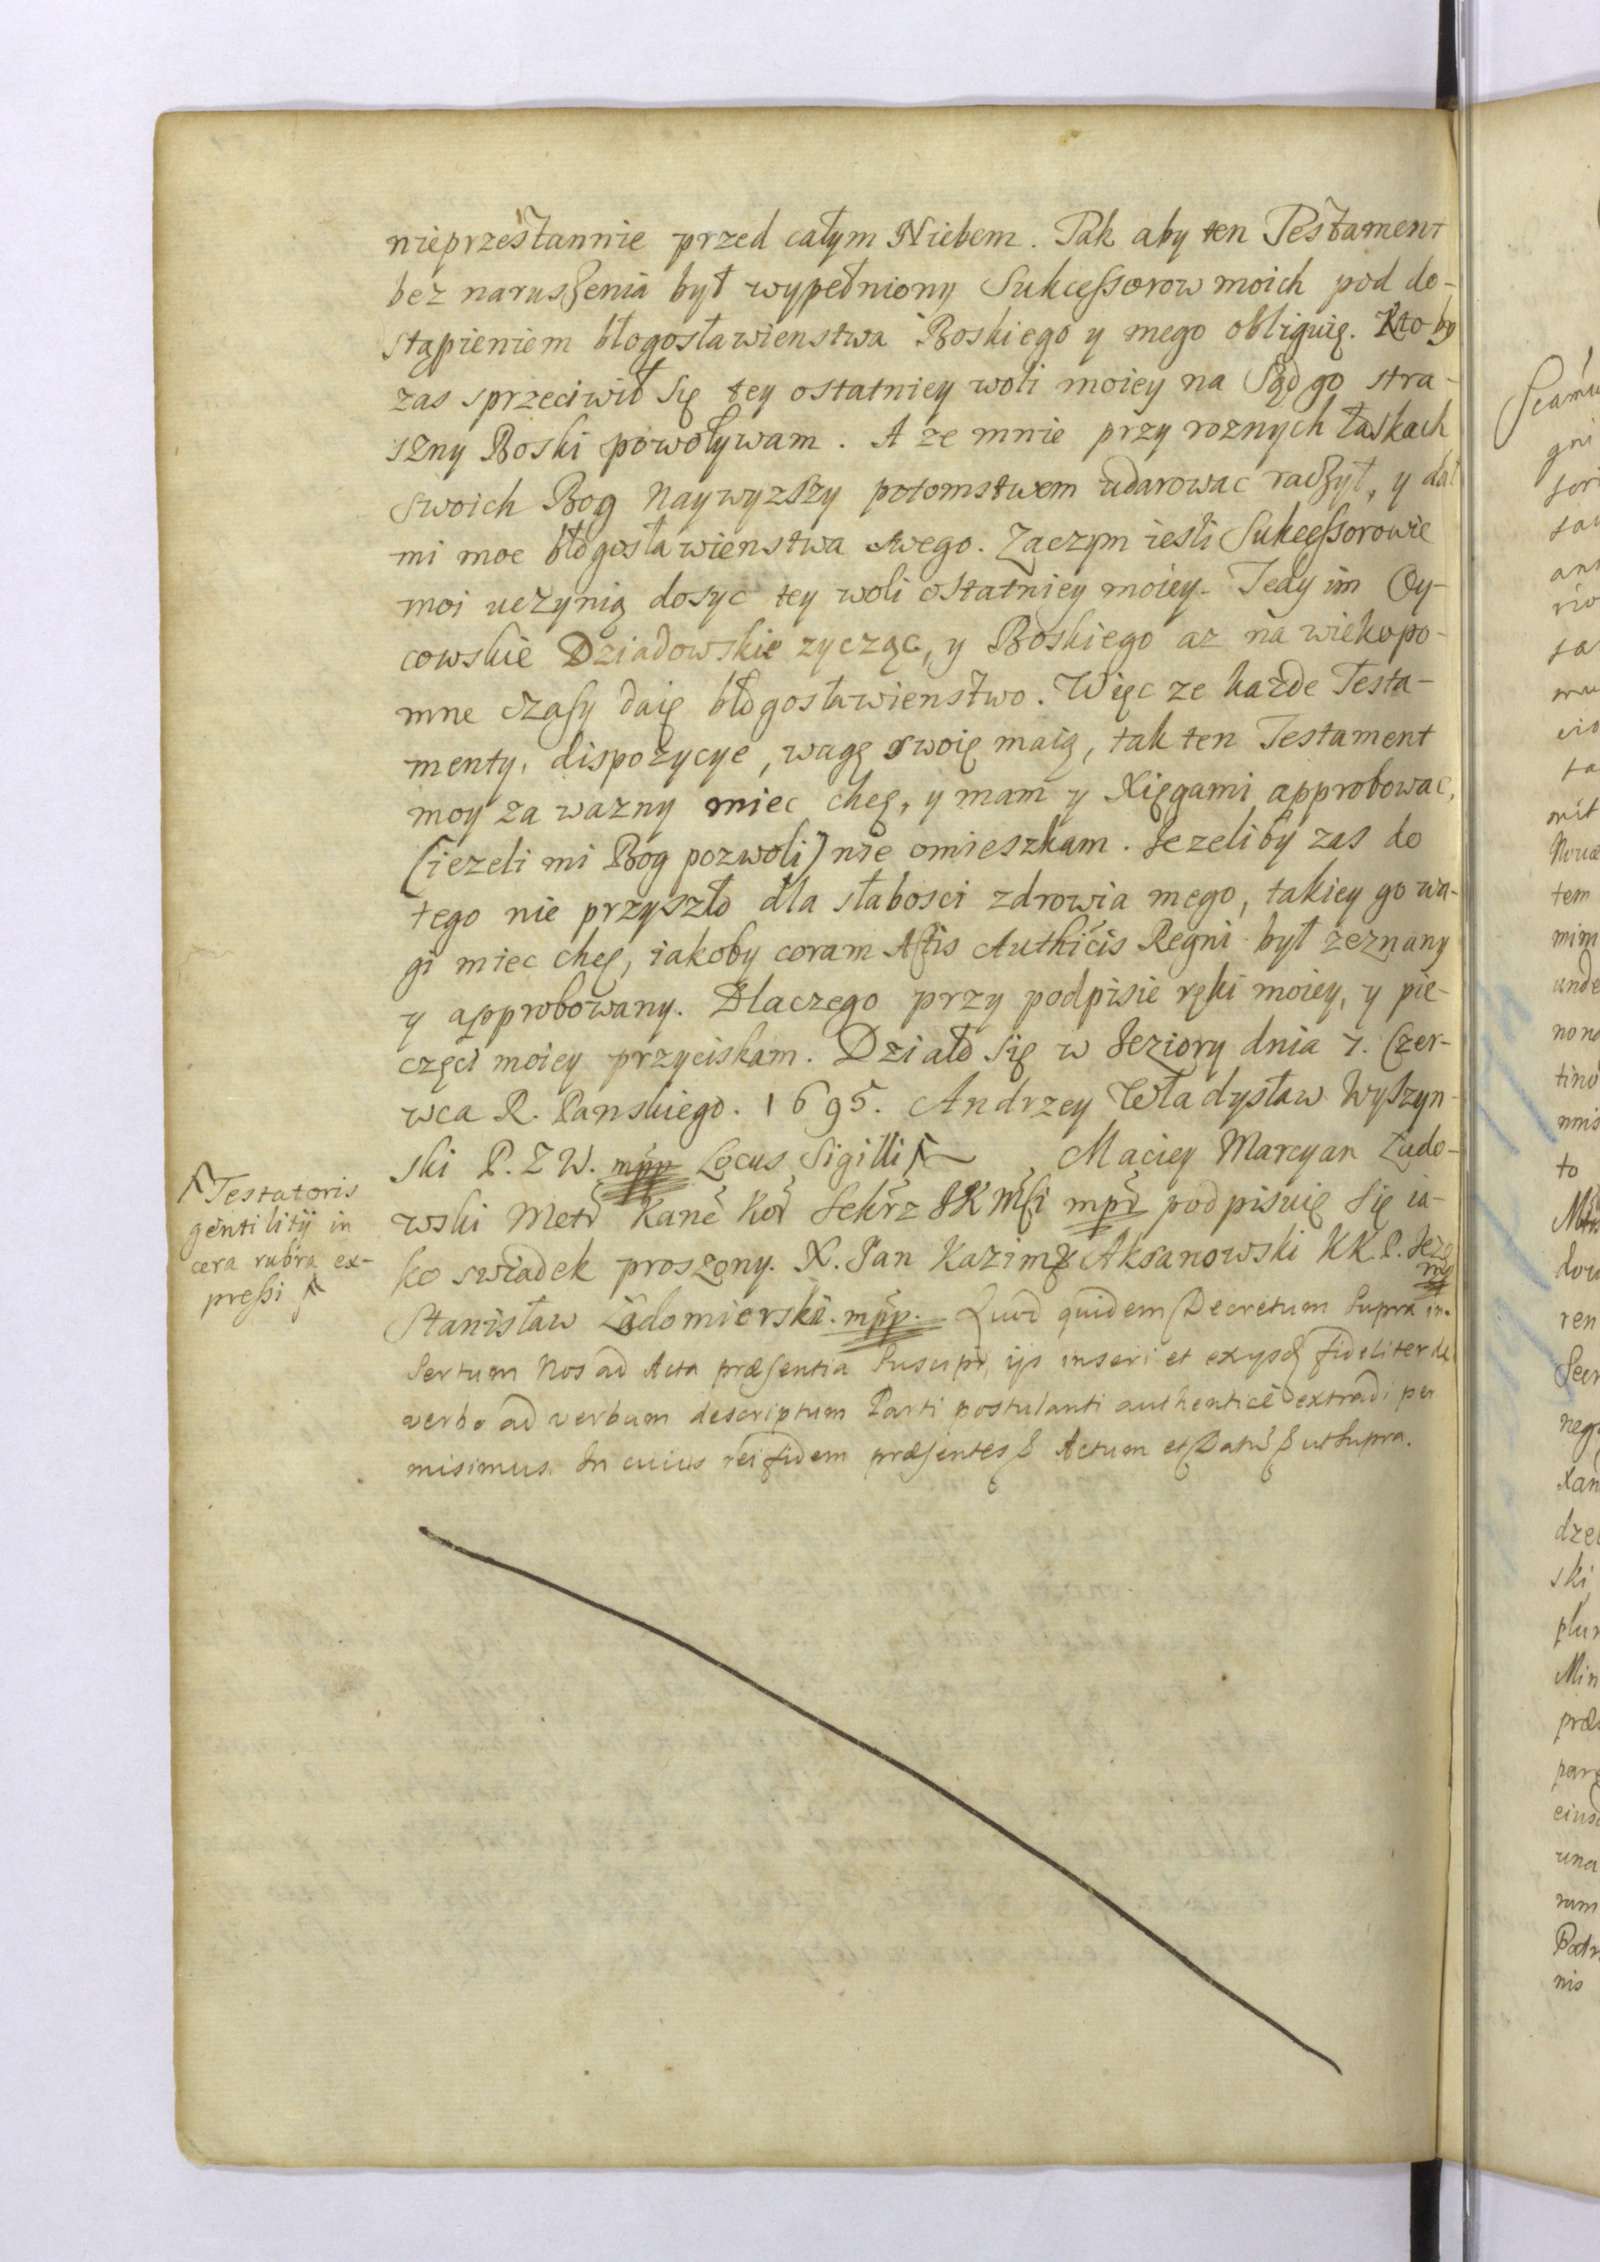 nieprzestannie przed całym Niebem. Tak aby ten Testament
bez naruszenia był wypełniony Sukcessorow moich pod do-
stąpieniem błogosławienstwa Boskiego y mego obliguię. Kto by
zas sprzeciwił się tey ostatniey woli moiey na Sąd go stra-
szny Boski powoływam. A ze mnie przy roznych łaskach
swoich Bog Naywyzszy potomstwem udarowac raczył, y dał
mi moc błogosławienstwa swego. Zaczym iesli Sukcessorowie
moi uczynią dosyc tey woli ostatniey moiey. Tedy im Oy-
cowskie Dziadowskie zycząc, y Boskiego az na wiekopo-
mne czasy daię błogosławienstwo. Więc ze kazde Testa-
menty, dispozycye, wagę swoię maią, tak ten Testament
moy za wazny miec chcę, y mam y Xięgami approbowac,
(iezeli mi Bog pozwoli) nie omieszkam. Jezeliby zas do
tego nie przyszło dla słabosci zdrowia mego, takiey go wa-
gi miec chcę, iakoby coram Actis Authēcis Regni był zeznany
y approbowany. Dlaczego przy podpisie ręki moiey, y pie-
częci moiey przyciskam. Działo się w Jeziory dnia 7. Czer-
wca R. Panskiego. 1695. Andrzey Władysław Wyszyn-
ski P. Z W. mpp Locus Sigilli Maciey Marcyan Ludo-
wski Metr Kanc Kor Sekrz JK Msci mpr podpisuię się ia-
ko swiadek proszony. X. Jan Kazimrz Aksanowski KK. P. Jezo
mp
Stanisław Ládomierski. mpp. Quod quidem Decretum supra in-
sertum Nos ad Acta præsentia suscipi, ijs inseri et exysq fideliter de
verbo ad verbum descriptum Parti postulanti authenticè extradi per
misimus. In cuius rei fidem præsentes & Actum et Datū & ut supra.
Testatoris
gentilitÿ in
cera rubra ex-
pressi